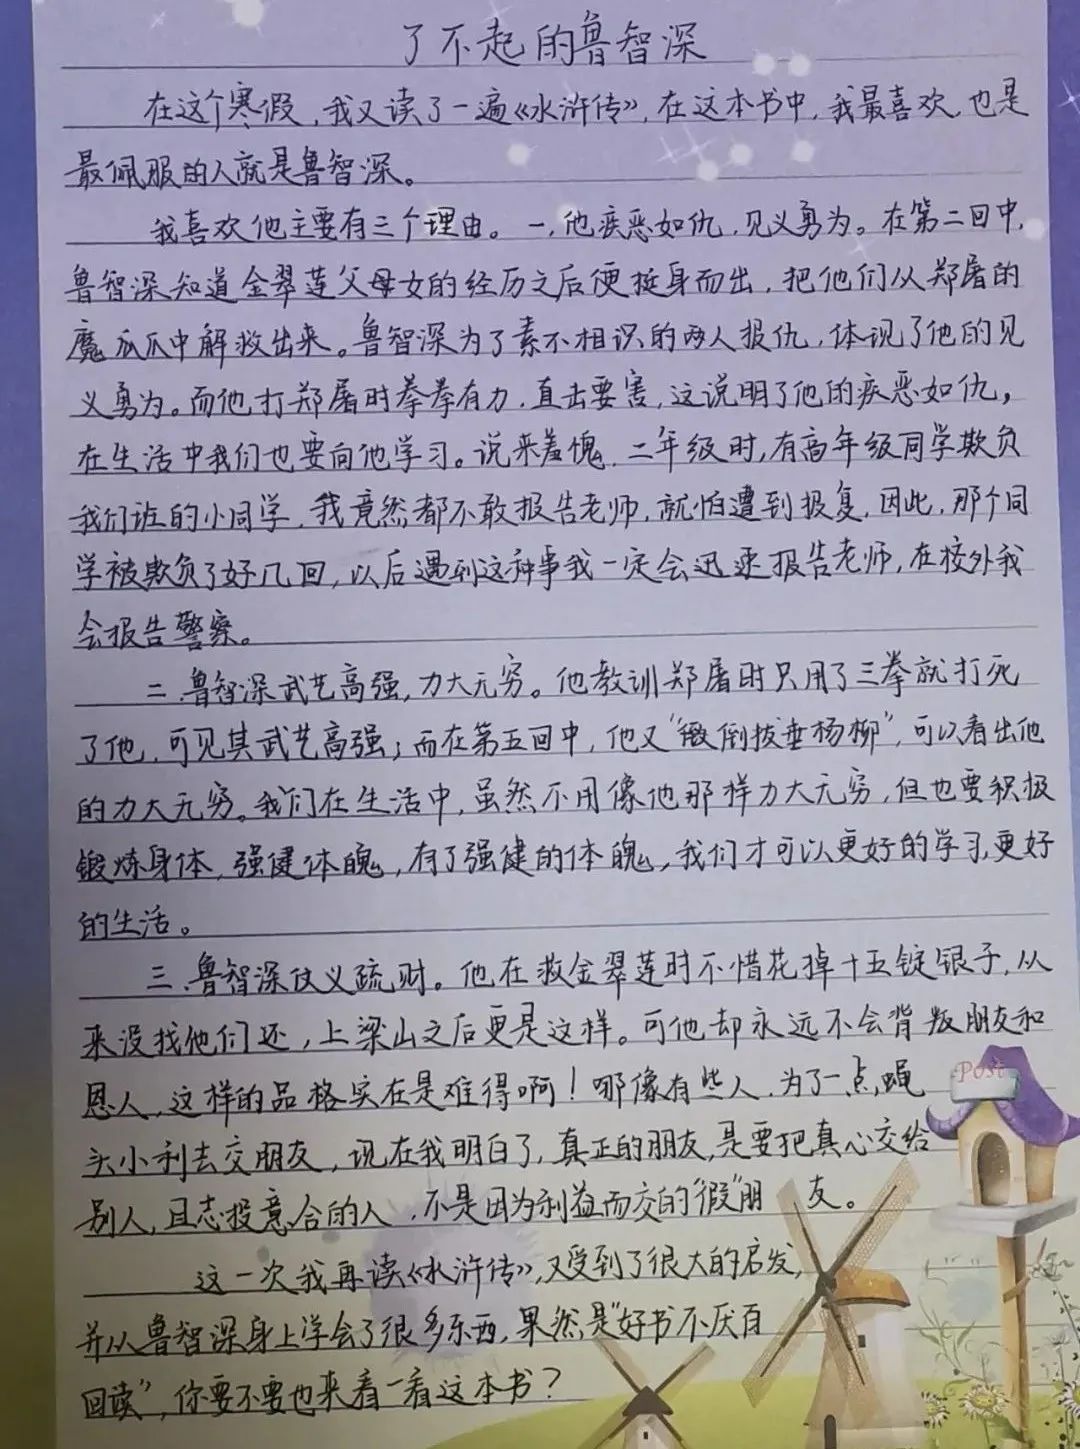 了不起的鲁智深
在这个寒假,我又读了一遍《水浒传》,在这本书中,我最喜欢,也是
最佩服的人就是鲁智深。
我喜欢他主要有三个理由。一,他疾恶如仇,见义勇为。在第二回中,
鲁智深知道金翠莲父母女的经历之后便挺身而出,把他们从郑屠的
魔爪爪中解救出来。鲁智深为了素不相识的两人报仇,体现了他的见
义勇为。而他打郑屠时拳拳有力,直击要害,这说明了他的疾恶如仇,
在生活中我们也要向他学习。说来羞愧,二年级时,有高年级同学欺负
我们班的小同学,我竟然都不敢报告老师,就怕遭到报复,因此,那个同
学被欺负了好几回,以后遇到这种事我一定会迅速报告老师,在校外我
会报告警察。
二、鲁智深武艺高强,力大无穷。他教训郑屠时只用了三拳就打死
了他,可见其武艺高强;而在第五回中,他又“倒拔垂杨柳”,可以看出他
的力大无穷。我们在生活中,虽然不用像他那样力大无穷,但也要积极
锻炼身体,强健体魄,有了强健的体魄,我们才可以更好的学习,更好
的生活。
三、鲁智深仗义疏财。他在救金翠莲时不惜花掉十五锭银子,从
来没找他们还,上梁山之后更是这样。可他却永远不会背叛朋友和
恩人,这样的品格实在是难得啊!哪像有些人,为了一点蝇
头小利去交朋友,现在我明白了,真正的朋友,是要把真心交给
别人,且志投意合的人,不是因为利益而交的“假”朋 友。
这一次我再读《水浒传》,又受到了很大的启发,
并从鲁智深身上学会了很多东西,果然是“好书不厌百
回读”,你要不要也来看一看这本书?
Post